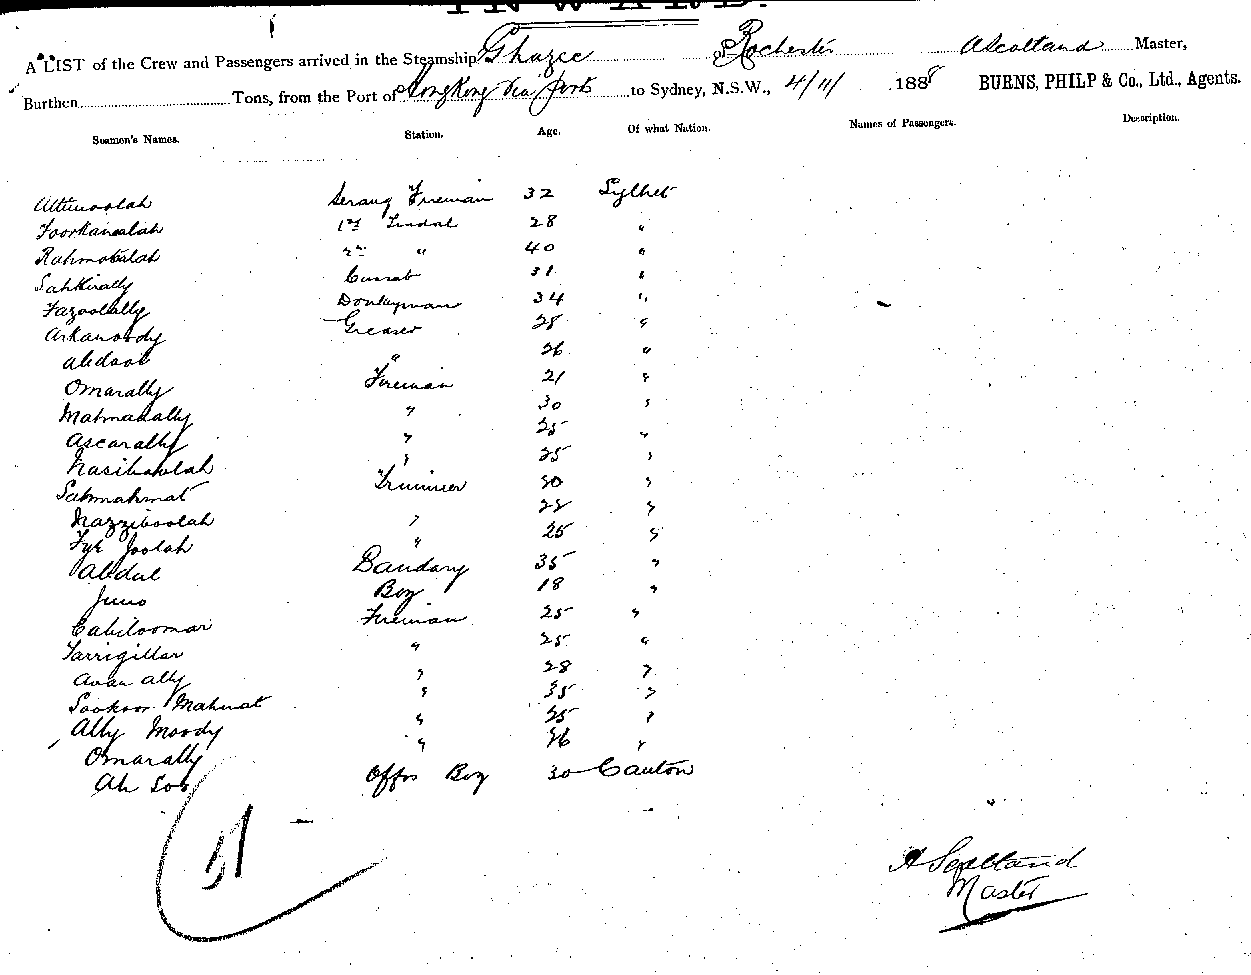 INWARD.
A LIST of the Crew and Passengers arrived in the Steamship Ghazee of Rochester A Scotland Master,
Burthen Tons, from the Port of Hong Kong via ports to Sydney, N.S.W., 4/11/ 1888 BURNS, PHILP & Co., Ltd., Agents.
Seamen's Names. Station. Age. Of what Nation. Names of Passengers. Description.
Serang Fireman 32 Sylhet
1st Tindal 28 "
Rahmatulah 2nd " 40 "
Cassab 31 "
Fazoolally Donkeyman 34 "
Greaser 28 "
Abdool " 26 "
Omarally Fireman 21 "
Mahmadally " 30 "
Ascarally " 25 "
" 25 "
Sahmahmat Trimmer 30 "
Nazziboolah " 22 "
Fyz Joolah " 25 "
Abdul Bandary 35 "
Juno Boy 18 "
Fireman 25 "
" 25 "
Avan ally " 28 "
Sookoor Mahmat " 35 "
Ally Moody " 25 "
Omarally " 26 "
Ah Soo Offrs Boy 30 Canton
51
A Scotland
Master